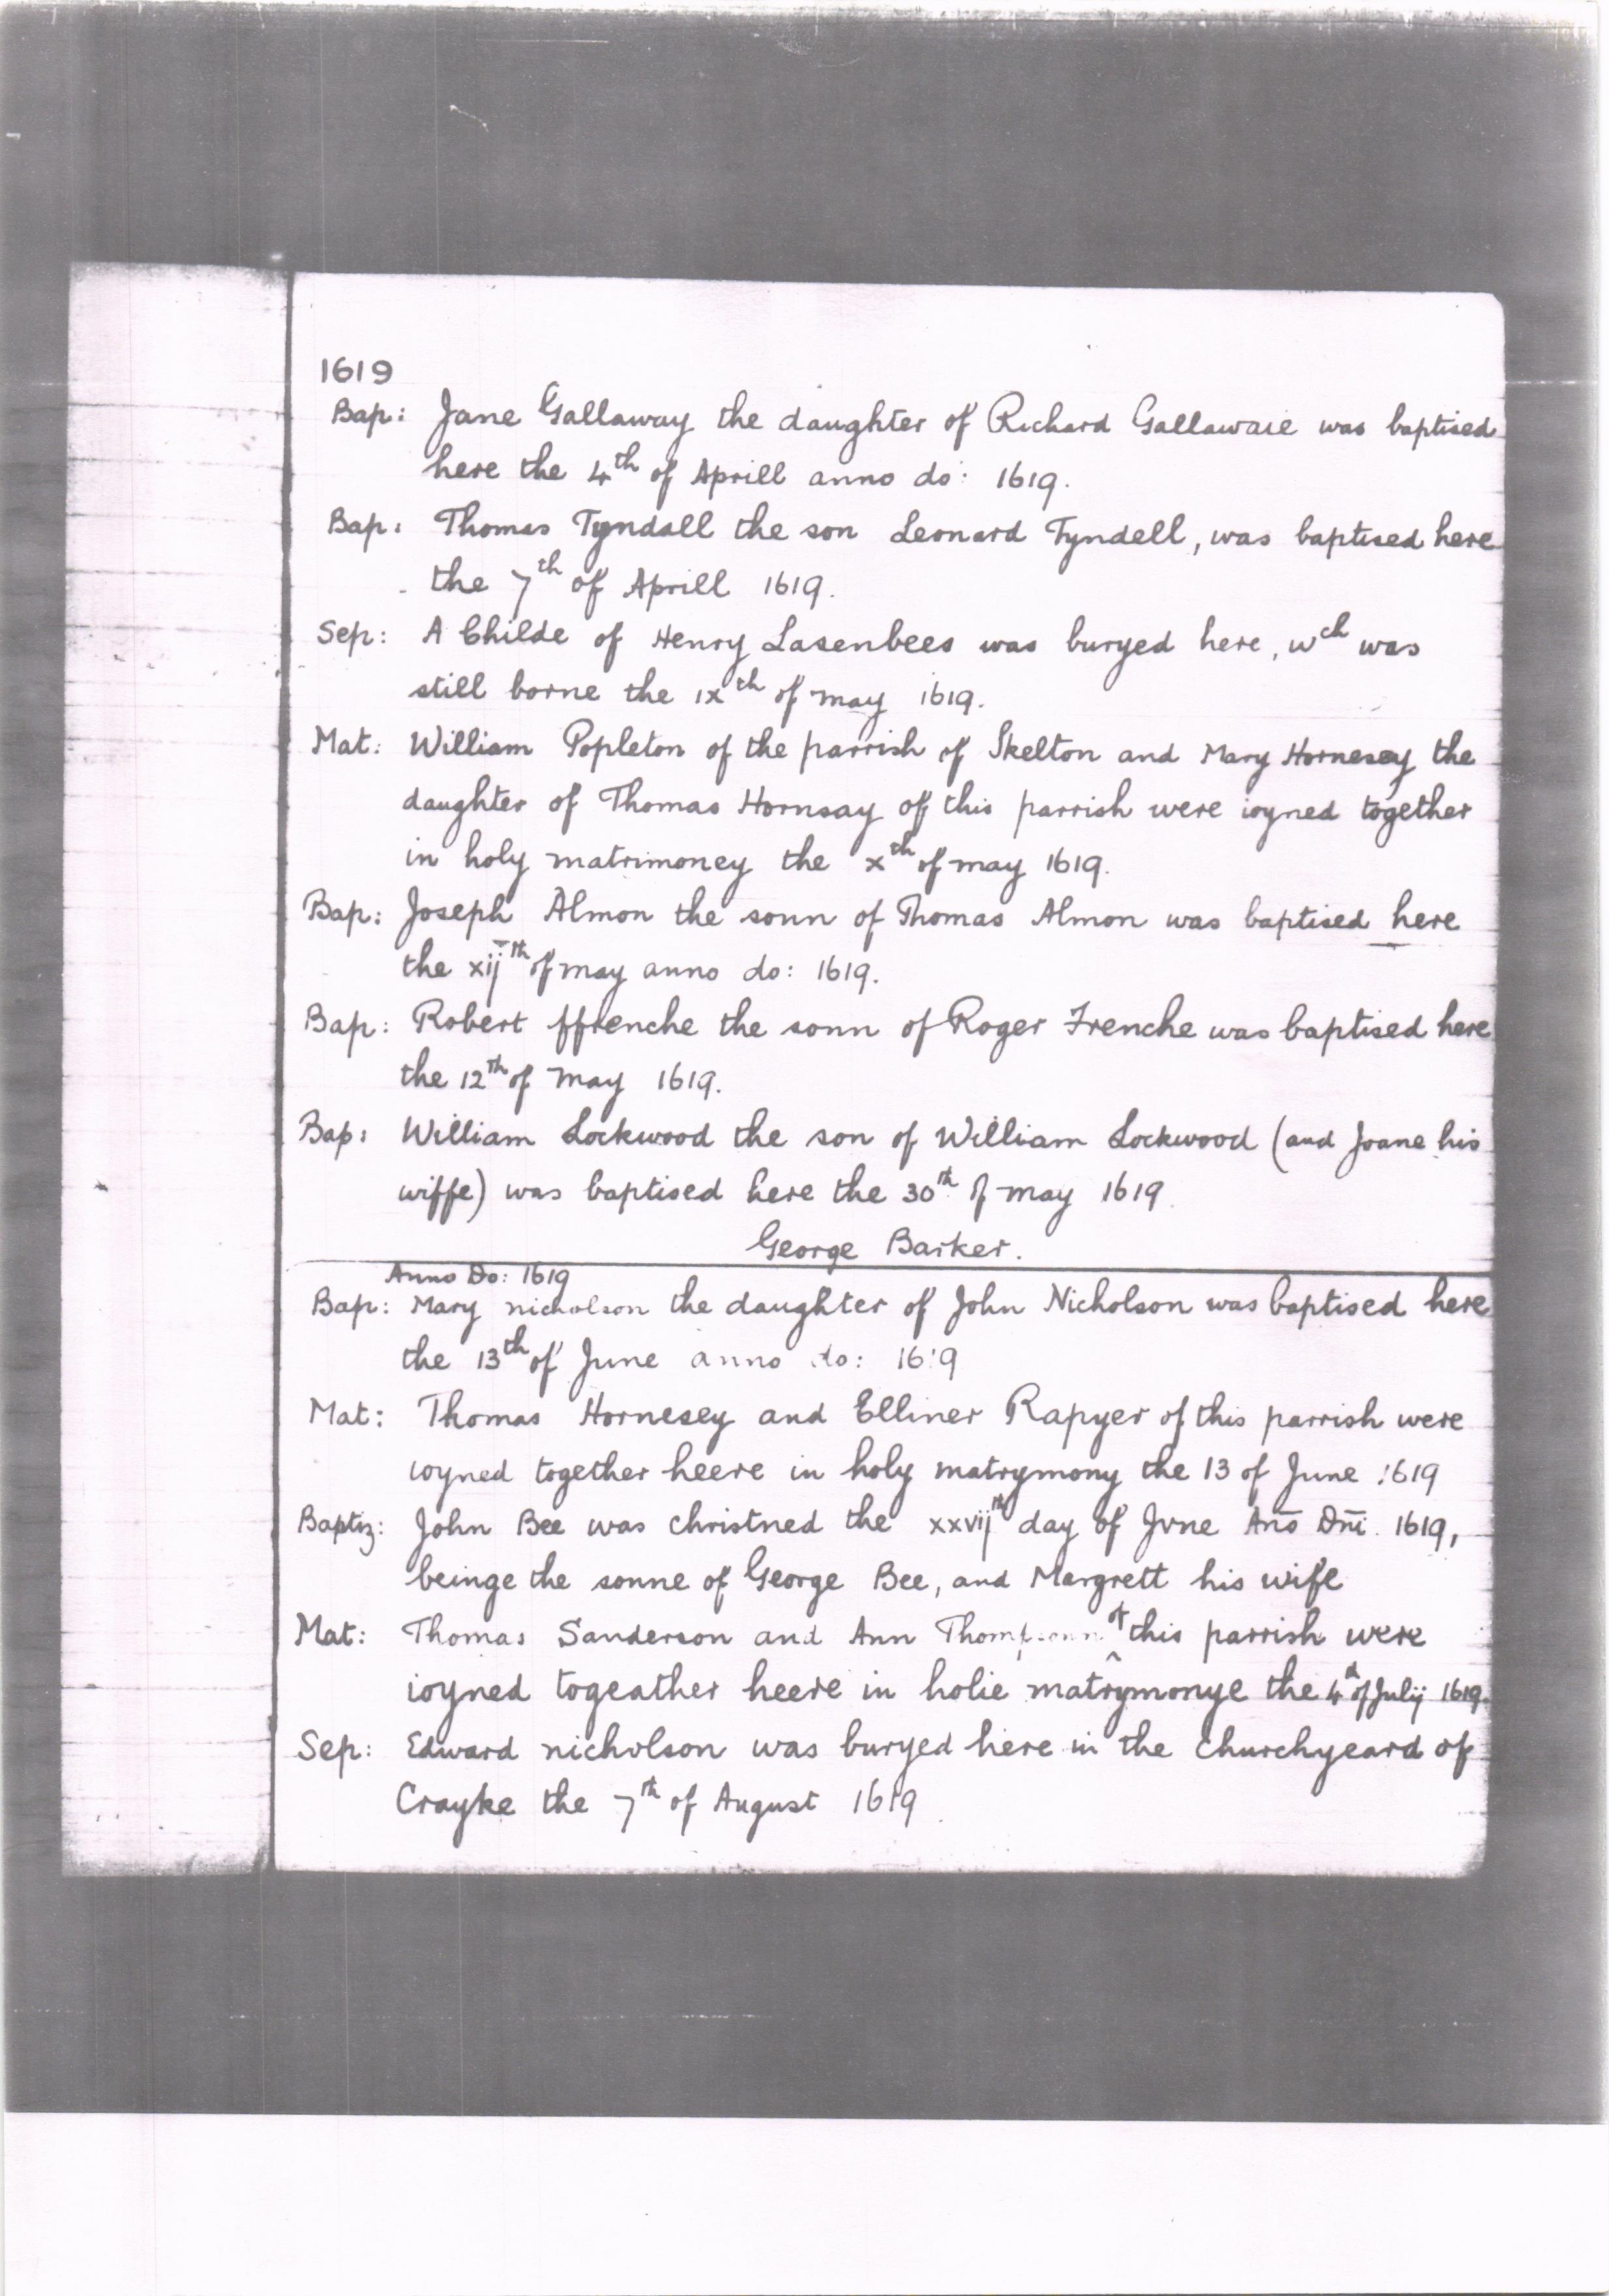 1619
Bap: Jane Gallaway the daughter of Richard Gallawaie was baptised
here the 4th of Aprill anno do: 1619.
Bap: Thomas Tyndall the son Leonard Tyndell, was baptised here
the 7th of Aprill 1619.
Sep: A Childe of Henry Lasenbees was buryed here, wch was
still borne the ixth of may 1619.
Mat: William Popleton of the parrish of Skelton and Mary Hornesey the
daughter of Thomas Hornsay of this parrish were ioyned together
in holy matrimoney the xth of may 1619.
Bap: Joseph Almon the sonn of Thomas Almon was baptised here
the xijth of may anno do: 1619.
Bap: Robert ffrenche the sonn of Roger Frenche was baptised here
the 12th of may 1619.
Bap: William Lockwood the son of William Lockwood (and Joane his
wiffe) was baptised here the 30th of may 1619.
George Barker.
Anno Do: 1619
Bap: Mary nicholson the daughter of John Nicholson was baptised here
the 13th of June anno do: 1619
Mat: Thomas Hornesey and Elliner Rapyer of this parrish were
ioyned together heere in holy matrymony the 13 of June 1619
Baptiz: John Bee was christned the xxvijth day of Jvne Ano̅ Dn̅i. 1619,
beinge the sonne of George Bee, and Margrett his wife
Mat: Thomas Sanderson and Ann of this parrish were
ioyned togeather heere in holie matrymonye the 4th of Julij 1619.
Sep: Edward nicholson was buryed here in the Churchyeard of
Crayke the 7th of August 1619